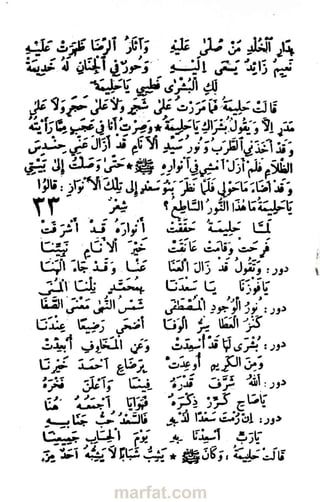 بِدَارِ الْخُلْدِ مَنْ صَلَّى عَلَيْهِ وَآثَارُ الرِّضَا ظَهَرَتْ عَلَيْهِ
نَعِيمٌ زَائِدٌ يَسْعَى إِلَيْهِ وَحُورٌ فِي الْجِنَانِ لَهُ خَدِيمَةْ
لَكِ الْبُشْرَى فَطِيبِي يَا حَلِيمَةْ
قَالَتْ حَلِيمَةُ فَمَا مَرَرْتُ عَلَى شَجَرٍ وَلَا عَلَى حَجَرٍ وَلَا عَلَى
مَدَرٍ إِلَّا وَيَقُولُ بُشْرَاكِ يَا حَلِيمَةُ * وَصِرْتُ أَنَا فِي عَجَبٍ مِمَّا رَأَيْتُهُ
وَقَدْ أَخَذَنِي الطَّرَبُ وَنُورُ سَيِّدِ الْأَنَامِ قَدْ أَزَالَ عَنِّي حِنْدِسَ
الظَّلَامِ فَلَمْ أَزَلْ أَمْشِي فِي أَنْوَارِهِ ﷺ * حَتَّى وَصَلْتُ إِلَى بَيْتِي
وَقَدْ أَضَاءَ مَا حَوْلِي فَلَمَّا نَظَرَ بَنُو سَعْدٍ إِلَى تِلْكَ الْأَنْوَارِ : قَالُوا
يَا حَلِيمَةُ مَا هَذَا النُّورُ السَّاطِعُ ؟ شِعْرٌ ٣٣
لَمَّا حَلِيمَةْ حَقَّقَتْ أَنْوَارُهُ قَدْ أَشْرَقَتْ
فَرِحَتْ وَقَامَتْ عَانَقَتْ خَيْرَ الْأَنَامِ نَبِيَّنَا
دور : وَتَقُولُ قَدْ زَالَ الْعَنَا عَنَّا وَقَدْ جَاءَ الْهَنَا
يَا فَوْزَنَا يَا سَعْدَنَا بِمُحَمَّدٍ نِلْنَا الْمُنَى
دور : نُورُ الْوُجُودِ الْمُصْطَفَى شَمْسُ الْهُدَى مَعْنَى الصَّفَا
كَنْزُ الْعَطَا بِرُّ الْوَفَا أَضْحَى رَضِيعًا عِنْدَنَا
دور : بُشْرَى لَهَا قَدْ أُسْعِدَتْ وَعَنِ الْمَخَاوِفِ أُبْعِدَتْ
وَمِنَ الْكَرِيمِ أُوعِدَتْ بِرَضَاعِ أَحْمَدَ خَيْرِنَا
دور : اَللهُ شَرَّفَ قَدْرَهُ فِينَا وَأَعْلَنَ فَخْرَهُ
يَا صَاحِ كَرِّرْ ذِكْرَهُ أَجْمَعُهُ هُنَا
دور : إِنْ رُمْتَ سَعْدًا لُذْ بِهِ فَالسَّعْدُ حُبُّ جَنَابِهِ
يَا رَبِّ أَسْعِدْنَا بِهِ يَوْمَ الْحِسَابِ جَمِيعَنَا
قَالَتْ حَلِيمَةُ : وَكَانَ ﷺ * يَشِبُّ شَبَابًا لَا يَشِبُّهُ أَحَدٌ مِنَ
marfat.com